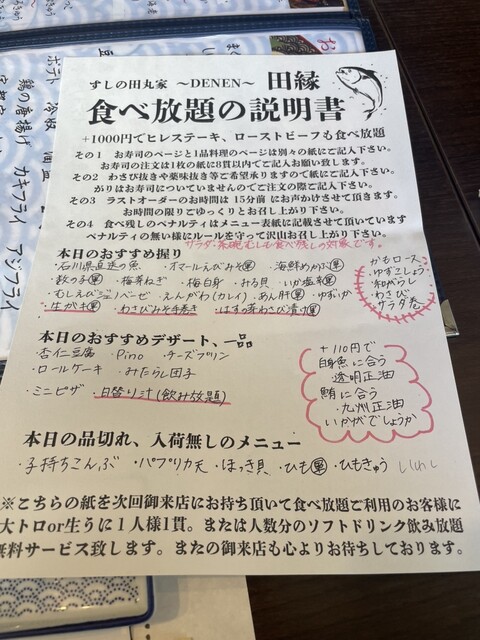 すしの田丸家 ～DENEN～ 田縁
食べ放題の説明書
+1000円でヒレステーキ、ローストビーフも食べ放題
その1 お寿司のページと1品料理のページは別々の紙にご記入下さい。
お寿司の注文は1枚の紙に8貫以内でご記入お願い致します。
その2 わさび抜きや薬味抜き等ご希望承りますので紙にご記入下さい。
がりはお寿司についていませんのでご注文の際ご記入下さい。
その3 ラストオーダーのお時間は 15分前 にお声かけさせて頂きます。
お時間の限りごゆっくりとお召し上がり下さい。
その4 食べ残しのペナルティはメニュー表紙に記載させて頂いています
ペナルティの無い様にルールを守って沢山お召し上がり下さい。
サラダ・茶碗むしも食べ残しの対象です。
本日のおすすめ握り
・石川県直送の魚 ・オマールえびみそ軍 ・海鮮めかぶ軍
・数の子軍 ・梅芽ねぎ ・梅白身 ・みる貝 ・いか塩辛軍
・むしえびジェノベーゼ ・えんがわ(カレイ) ・あん肝軍 ・ゆずいか
・生がき軍 ・わさびみそ手巻き ・はすの芽わさび漬け軍
かもロース
・ゆずこしょう
・和がらし
・わさび
・サラダ巻
本日のおすすめデザート、一品
・杏仁豆腐 ・Pino ・チーズプリン
・ロールケーキ ・みたらし団子
・ミニピザ ・日替り汁(飲み放題)
+110円で
白身魚に合う
透明正油
鮪に合う
・九州正油
いかがでしょうか
本日の品切れ、入荷無しのメニュー
・子持ちこんぶ ・パプリカ天 ・ほっき貝 ・ひも軍 ・ひもきゅう いわし
※こちらの紙を次回御来店にお持ち頂いて食べ放題ご利用のお客様に
大トロor生うに1人様1貫。または人数分のソフトドリンク飲み放題
無料サービス致します。またの御来店も心よりお待ちしております。
ポテト 冷奴
鶏の唐揚げ カキフライ アジフライ